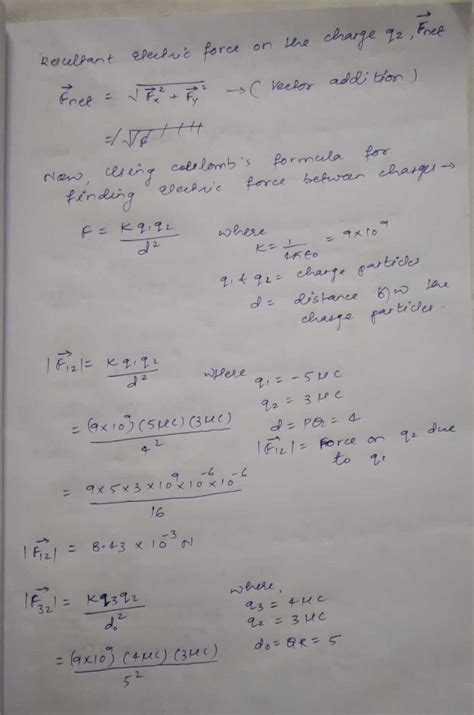 Resultant electric force on the charge q₂, F⃗net
F⃗net = √(F⃗x² + F⃗y²) → (vector addition)
=
Now, using coulomb's formula for
finding electric force between charges →
F = Kq₁q₂/d² where K = 1/4πε₀ = 9×10⁹
q₁ & q₂ = charge particles
d = distance b/w the
charge particles.
|F⃗₁₂| = Kq₁q₂/d² where q₁ = -5μC
q₂ = 3μC
= (9×10⁹)(5μC)(3μC)/4² d = PQ = 4
|F⃗₁₂| = Force on q₂ due
to q₁
= 9×5×3×10⁹×10⁻⁶×10⁻⁶/16
|F⃗₁₂| = 8.43 × 10⁻³ N
|F⃗₃₂| = Kq₃q₂/d₀² where,
q₃ = 4μC
q₂ = 3μC
= (9×10⁹)(4μC)(3μC)/5² d₀ = QR = 5